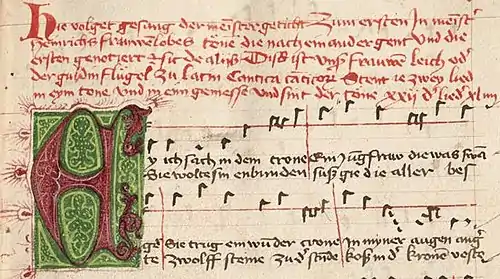 Hie volget gesang der meister geticht Zum ersten In meist
Heinrichs frauwenlobes töne die nach ein ander gent Und die
ersten genotiert et sic de aliis Diß ist unß frauwen leich od
der guldin flügel zu latin Cantica Stent ie zwey lied
in eym tone Und in eim gemesse und sint der töne xxii d lied xliiii
Ey ich sach in dem trone Ein Jungfrauw die was
Sie wolte sin enbunden suß gie die aller bes
Sie trug ein wunder crone In myner augen
te zwölff steine zu d stunde koß in d kronen veste